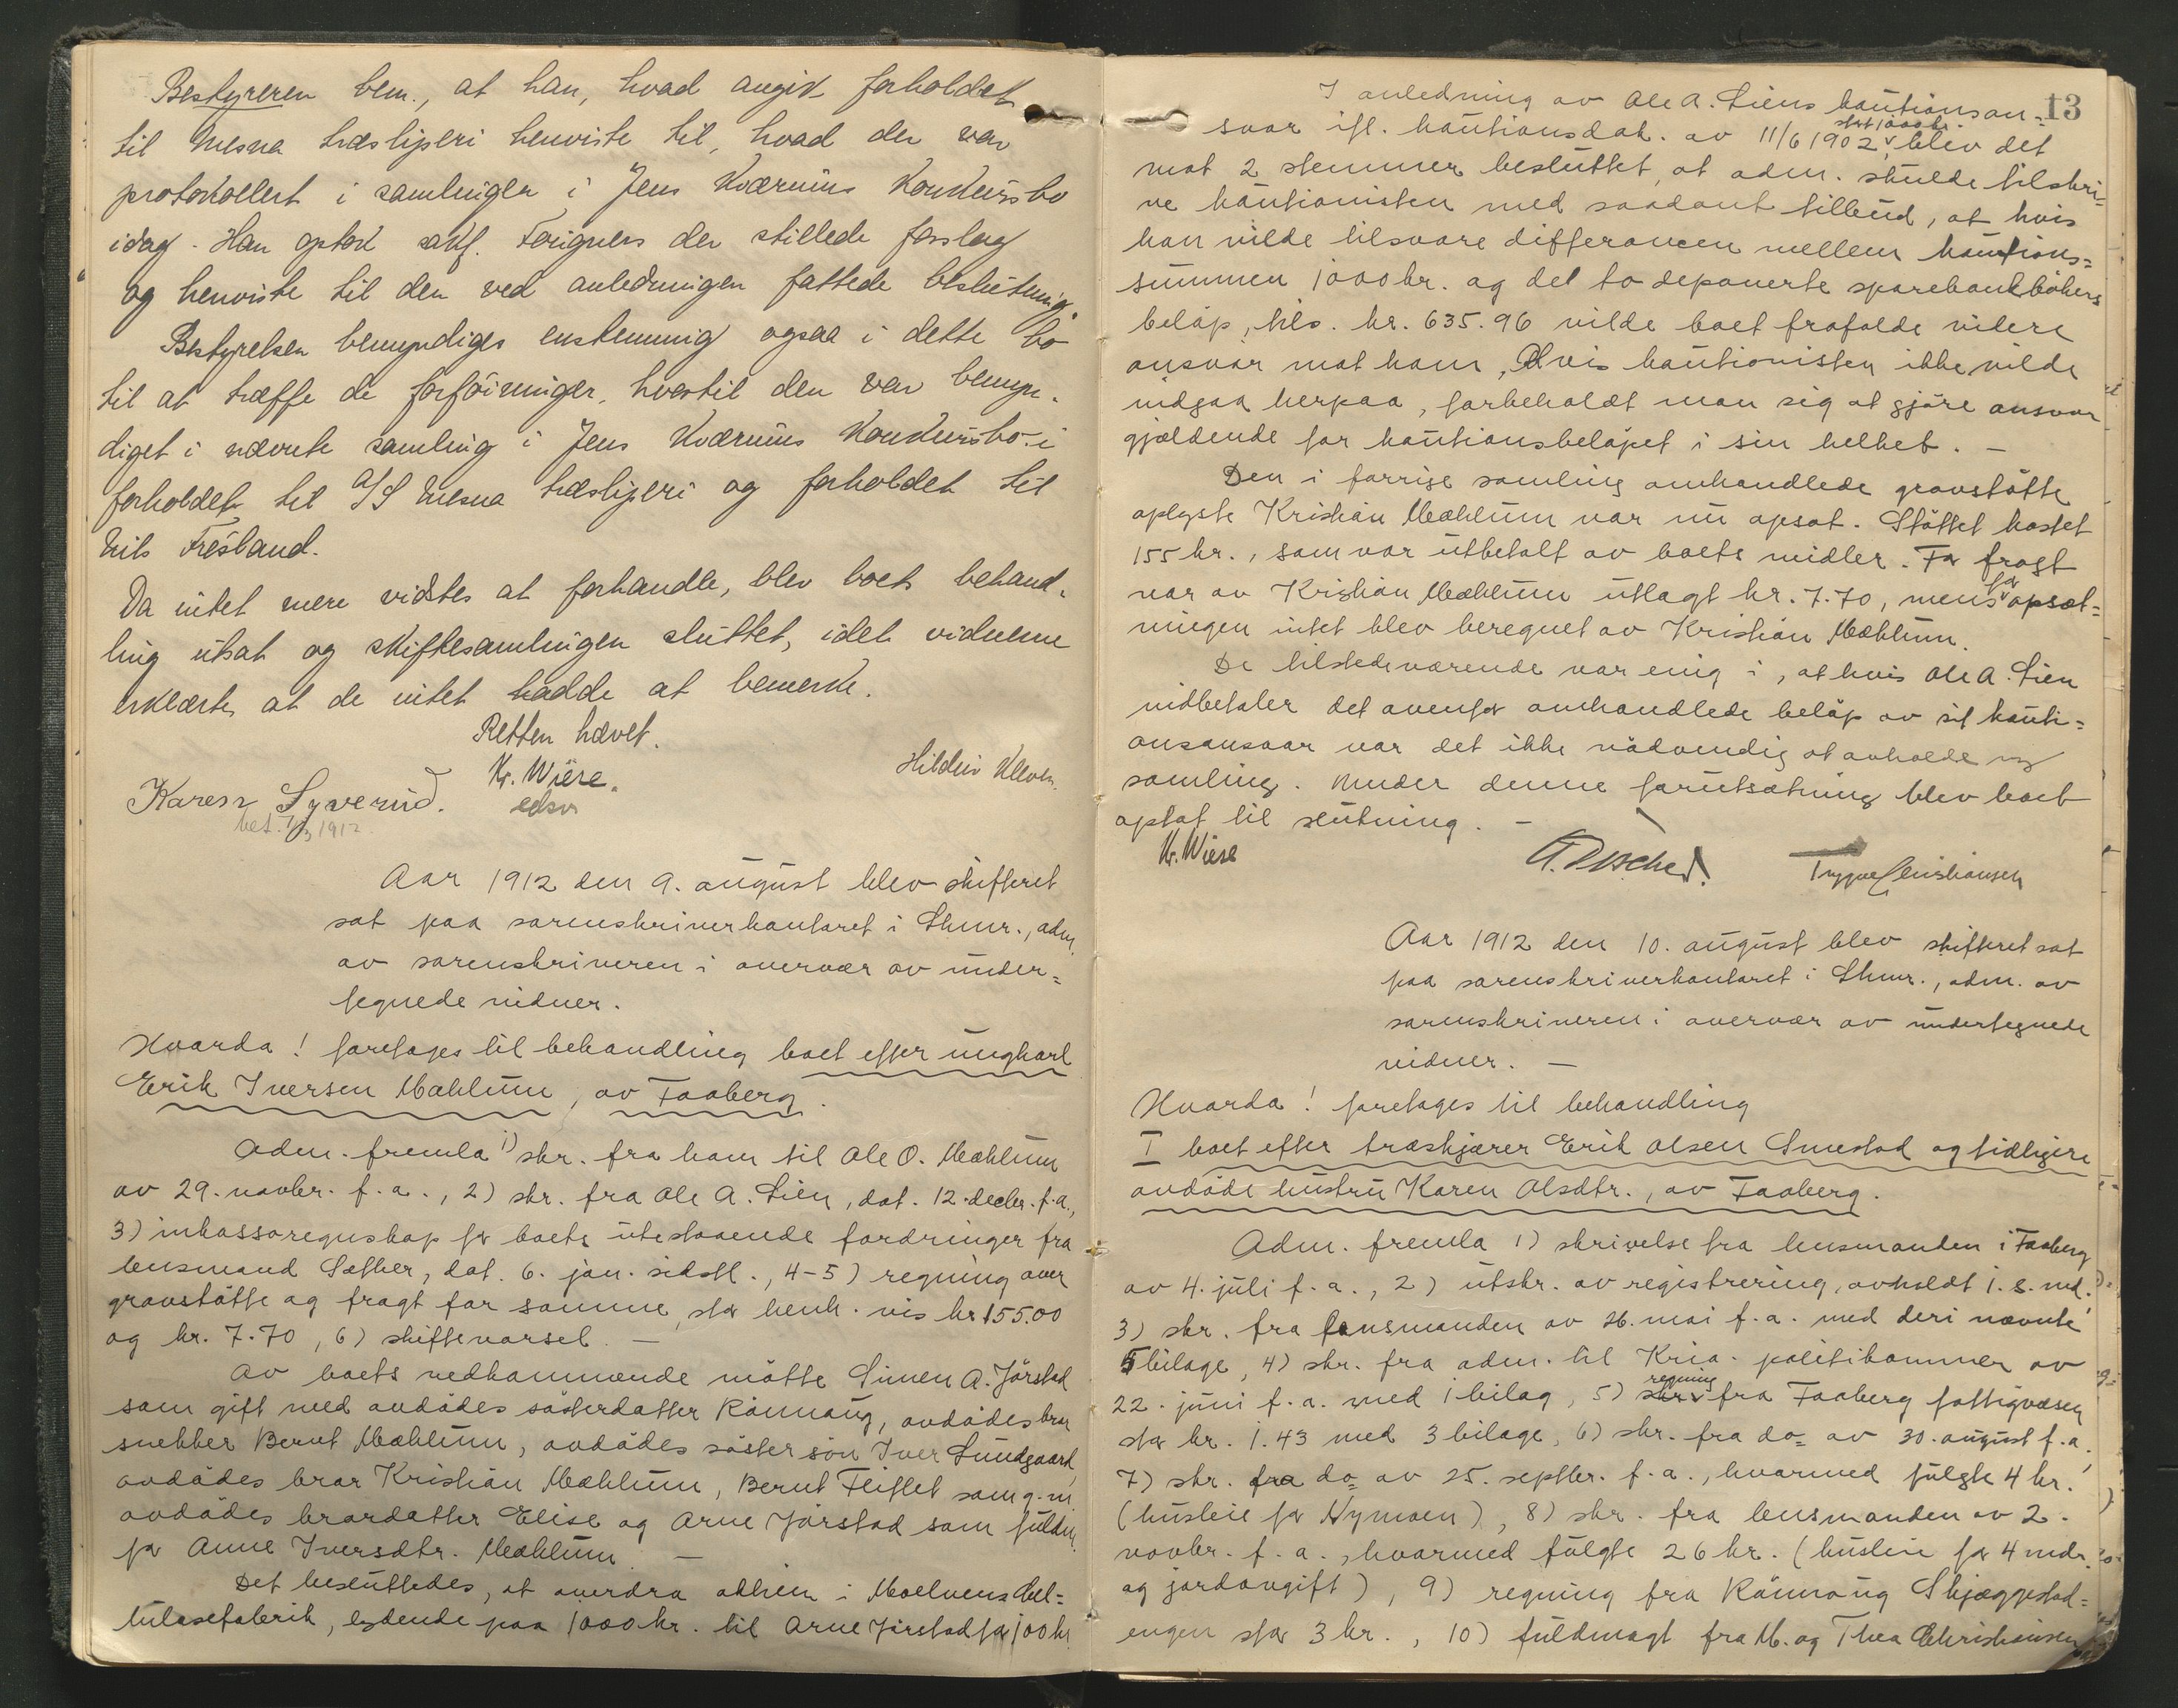 Bestyreren bem., at han, hvad angik forholdet
til Mesna træsliperi henviste til, hvad der var
protokollert i samlingen i Jens Kværnins Konkursbo
idag. Han optok sakf. Foigners der stillede forslag
og henviste til den ved anledningen fattede beslutning.
Bestyrelsen bemyndiges enstemmig ogsaa i dette bo
til at træffe de forföininger, hvortil den var bemyn-
diget i nævnte samling i Jens Kværnins Konkursbo i
forholdet til A/S Mesna træsliperi og forholdet til
Nils Frösland.
Da intet mere vidstes at forhandle, blev boets behand-
ling utsat og skiftesamlingen sluttet, idet vidnerne
erklærte, at de intet hadde at bemerke.
Retten hævet.
Kr. Wiese. Hildur Kleven.
Karen Syverud. edsv
bet. 1/3 1912
Aar 1912 den 9. august blev skifteret
sat paa sorenskriverkontoret i Lhmr., adm.
av sorenskriveren i overvær av under=
tegnede vidner.
Hvorda! foretages til behandling boet efter ungkarl
Erik Iversen Mæhlum, av Faaberg.
Adm. fremla 1) skr. fra ham til Ole O. Mæhlum
av 29. novbr. f.a., 2) skr. fra Ole A. Lien, dat. 12. decbr. f.a.,
3) inkassoregnskap for boets utestaaende fordringer fra
lensmand Sæther, dat. 6. jan. sidstl., 4-5) regning over
gravstötte og fragt for samme, stor henh. vis kr. 155.00
og kr. 7.70, 6) skiftevarsel. —
Av boets vedkommende mötte Simen A. Jörstad
som gift med avdödes sösterdatter Rönnaug, avdödes bror
snekker Bernt Mæhlum, avdödes söstersön Iver Sundgaard,
avdödes bror Kristian Mæhlum, Bernt Fliflet som g. m.
avdödes brordatter Elise og Arne Jörstad som fuldm.
for Anne Iversdtr. Mæhlum. —
Det besluttedes, at overdra aktien i Moelvens Cel=
lulosefabrik, lydende paa 1000 kr. til Arne Jörstad for 100 kr.
13
I anledning av Ole A. Liens kautionsan=
svar ifl. kautionsdok. av 11/6 1902 stort 1000 kr. blev det
mot 2 stemmer besluttet, at adm. skulde tilskri=
ve kautionisten med saadant tilbud, at hvis
han vilde tilsvare differancen mellem kautions=
summen 1000 kr. og det to deponerte sparebankbökers
belöp, tils. kr. 635.96 vilde boet frafalde videre
ansvar mot ham. Hvis kautionisten ikke vilde
indgaa herpaa, forbeholdt man sig at gjöre ansvar
gjældende for kautionsbelöpet i sin helhet. —
Den i forrige samling omhandlede gravstötte
oplyste Kristian Mæhlum var nu opsat. Stöttet kostet
155 kr., som var utbetalt av boets midler. For fragt
var av Kristian Mæhlum utlagt kr. 7.70, mens for opsæt=
ningen intet blev beregnet av Kristian Mæhlum.
De tilstedeværende var enig i, at hvis Ole A. Lien
indbetaler det ovenfor omhandlede belöp av sit kauti=
onsansvar var det ikke nödvendig at avholde ny
samling. Under denne forutsætning blev boet
optat til slutning. —
Kr. Wiese Trygve Christiansen
Aar 1912 den 10. august blev skifteret sat
paa sorenskriverkontoret i Lhmr., adm. av
sorenskriveren i overvær av undertegnede
vidner. —
Hvorda! foretages til behandling
I boet efter træskjærer Erik Olsen Smestad og tidligere
avdöde hustru Karen Olsdtr., av Faaberg.
Adm. fremla 1) skrivelse fra lensmanden i Faaberg
av 4. juli f.a., 2) utskr. av registrering, avholdt i. s. md.
3) skr. fra lensmanden av 26. mai f.a. med deri nævnte
5 bilage, 4) skr. fra adm. til Kria. politikammer av
22. juni f.a. med 1 bilag, 5) regning fra Faaberg fattigvæsen
stor kr. 1.43 med 3 bilage, 6) skr. fra do= av 30. august f.a.
7) skr. fra do= av 25. septbr. f.a., hvormed fulgte 4 kr.
(husleie for Nymoen), 8) skr. fra lensmanden av 2.
novbr. f.a., hvormed fulgte 26 kr. (husleie for 4 mdr.
og jordavgift), 9) regning fra Rönnaug Skjæggestad=
engen stor 3 kr., 10) fuldmagt fra M. og Thea Christiansen